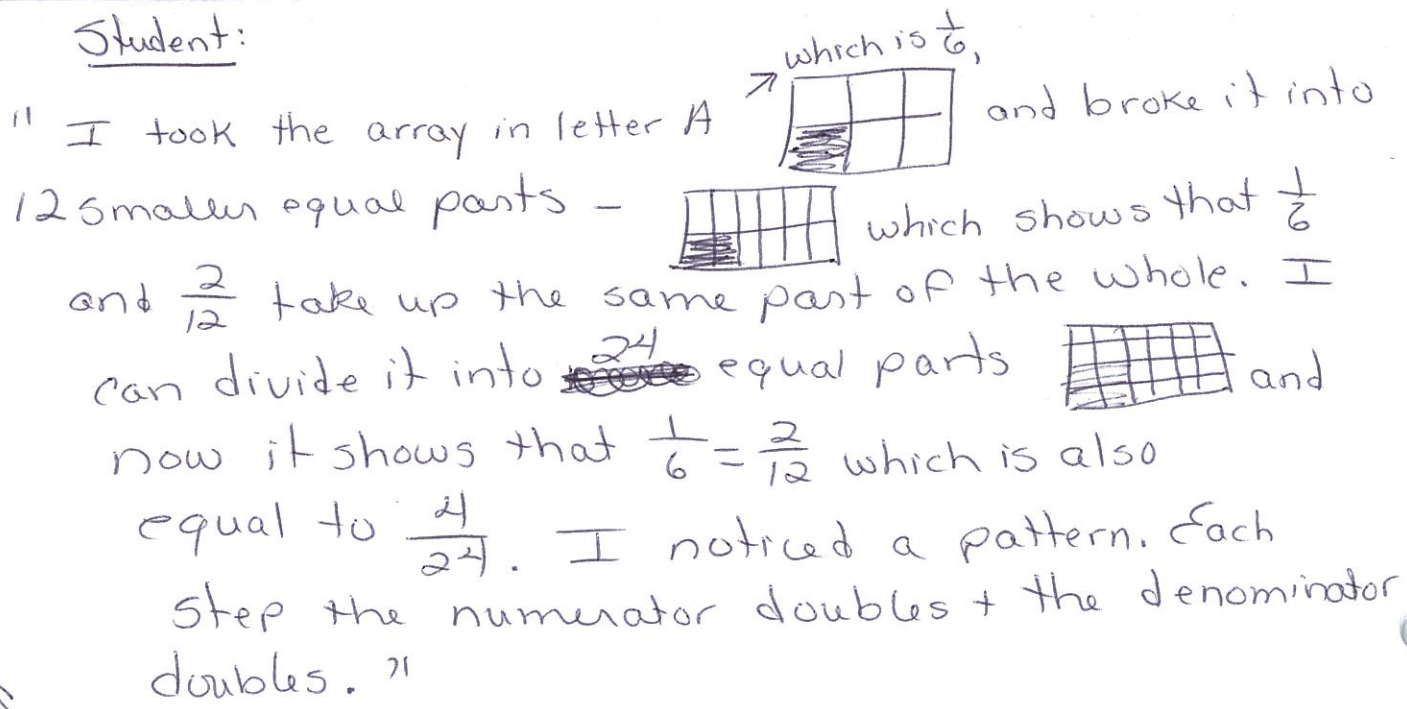 Student:
which is 1/6,
" I took the array in letter A ↗ and broke it into
12 smaller equal parts – which shows that 1/6
and 2/12 take up the same part of the whole. I
can divide it into 24 equal parts and
now it shows that 1/6 = 2/12 which is also
equal to 4/24. I noticed a pattern. Each
step the numerator doubles + the denominator
doubles. "